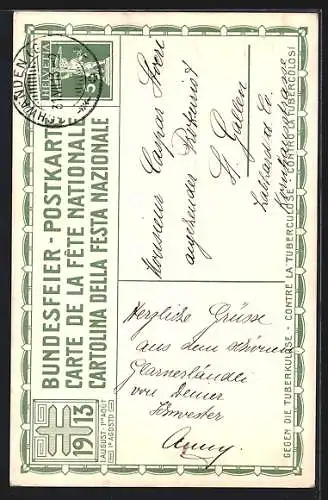 BUNDESFEIER - POSTKARTE
CARTE DE LA FÊTE NATIONALE
CARTOLINA DELLA FESTA NAZIONALE
1913
1. AUGUST · 1er AOÛT
1o AGOSTO
HELVETIA
5
SCHWANDEN
Monsieur Caspar
angehender Botanist
St. Gallen
Herzliche Grüsse
aus dem schönen
Glarnerländli
von Deiner
Schwester
Anny.
GEGEN DIE TUBERKULOSE - CONTRE LA TUBERCULOSE - CONTRO LA TUBERCOLOSI